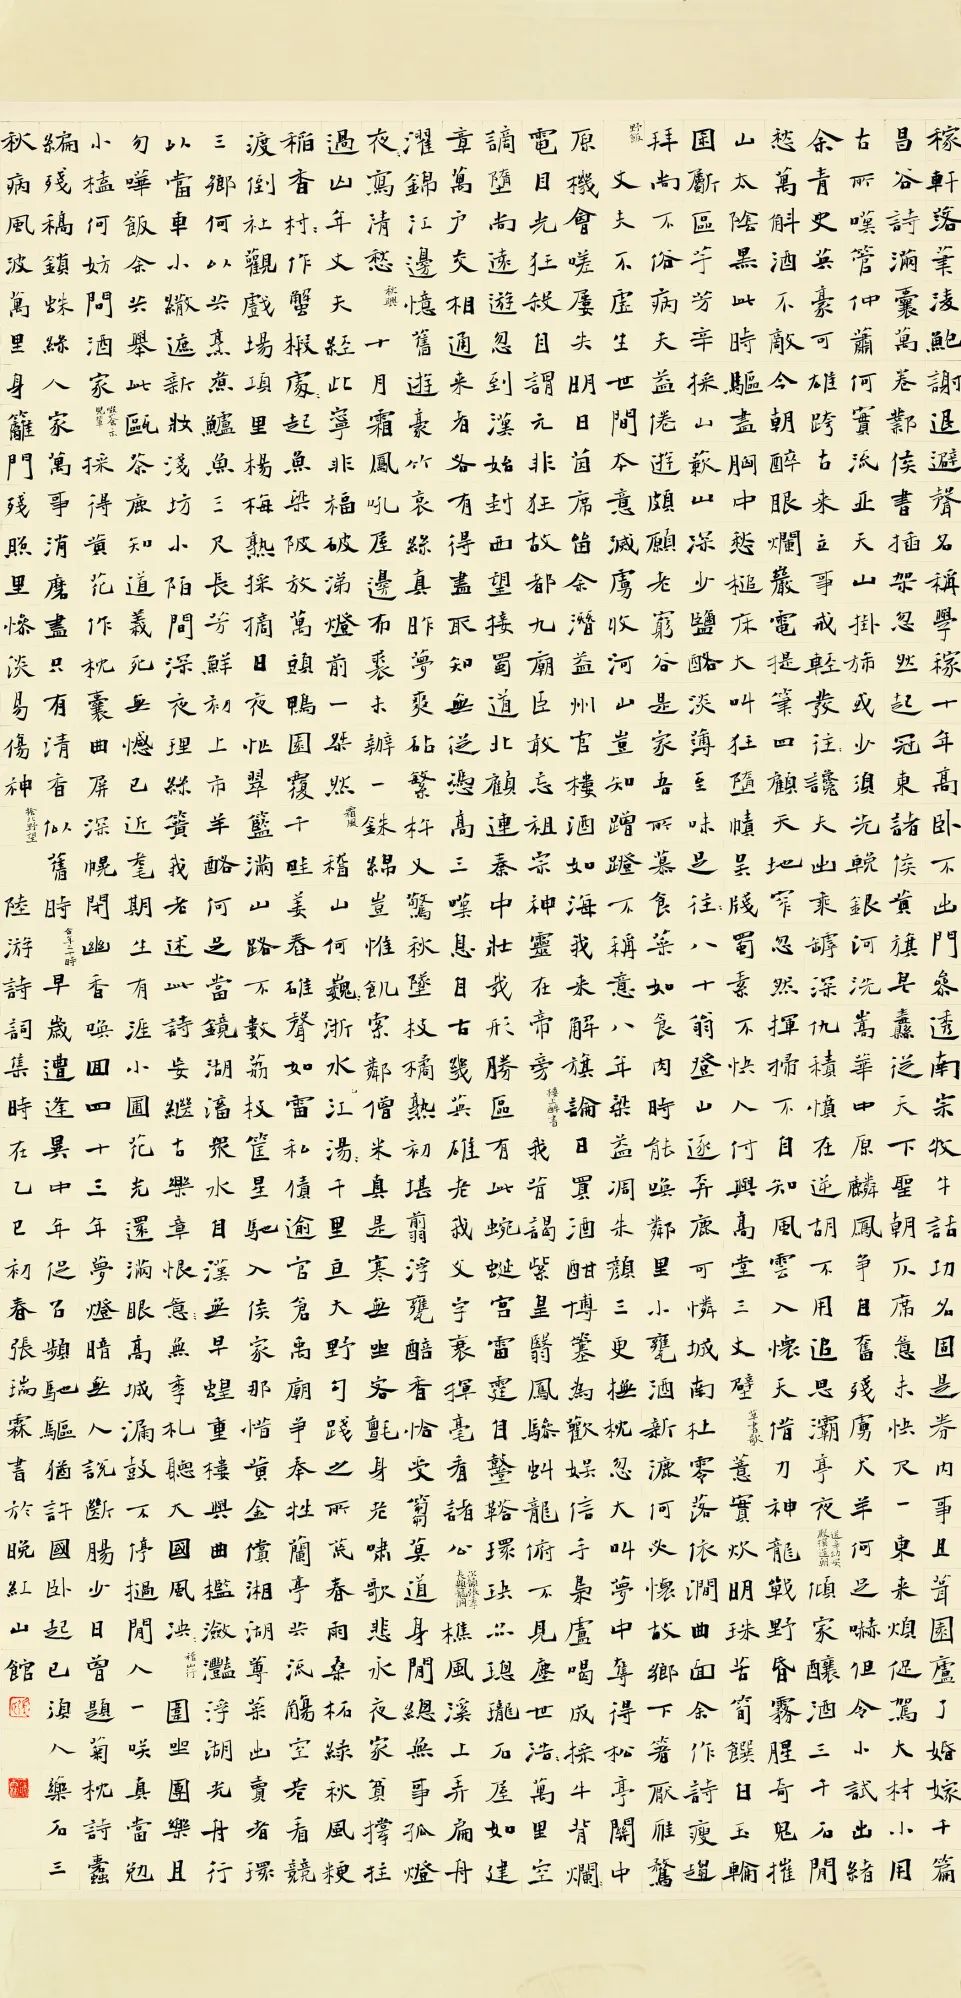 稼軒落筆凌鮑謝退避聲名稱學稼十年高臥不出門參透南宗牧牛話功名固是券內事且葺園廬了婚嫁千篇
昌谷詩滿囊萬卷鄴侯書插架忽然起冠東諸侯黃旗皂纛從天下聖朝仄席意未快尺一東來煩促駕大材小用
古所嘆管仲蕭何實流亞天山掛旆或少須先輓銀河洗嵩華中原麟鳳爭自奮殘虜犬羊何足嚇但令小試出緒
余青史英豪可雄跨古來立事戒輕發往:讒夫出乘罅深仇積憤在逆胡不用追思灞亭夜 送辛幼安殿撰造朝 傾家釀酒三千石閒
愁萬斛酒不敵今朝醉眼爛巖電提筆四顧天地窄忽然揮掃不自知風雲入懷天借刀神龍戰野昏霧腥奇鬼摧
山太陰黑此時驅盡胸中愁槌床大叫狂墮幘吳牋蜀素不快人付興高堂三丈壁 草書歌 薏實炊明珠苦筍饌白玉輪
囷斸區芋芳辛採山蔌山深少鹽酪淡薄至味足往:八十翁登山逐奔鹿可憐城南杜零落依澗曲面余作詩瘦趨
拜尚不俗病夫益倦遊頗願老窮谷是家吾所慕食菜如食肉時能喚鄰里小甕酒新漉何必懷故鄉下箸厭雁鶩
野飯 丈夫不虛生世間本意滅虜收河山豈知蹭蹬不稱意八年梁益凋朱顏三更撫枕忽大叫夢中奪得松亭關中
原機會嗟屢失明日茵席笛余潛益州官樓酒如海我來解旗論日買酒酣博簺為歡娛信手梟盧喝成採牛背爛:
電目光狂殺自謂元非狂故都九廟臣敢忘祖宗神靈在帝旁 樓上醉書 我昔謁紫皇翳鳳驂虯龍俯不見塵世浩:萬里空
謫墮尚遠遊忽到漢始封西望接蜀道北顧連秦中壯我形勝區有此蜿蜒宮雷霆自鏧鞳環玦亦璁瓏石屋如建
章萬戶交相通來者各有得盡取知無從憑高三嘆息自古幾英雄老我文字衰揮毫看諸公 樵風溪上弄扁舟
濯錦江邊憶舊遊豪竹哀絲真昨夢爽砧繁杵又驚秋墜枝橘熟初堪翦浮甕醅香恰受篘莫道身閒總無事孤燈
夜:寫清愁 秋興 十月霜鳳吼屋邊布裘未辦一銖綿豈惟飢索鄰僧米真是寒無坐客氈身老嘯歌悲永夜家貧撐拄
過凶年丈天經此寧非福破涕燈前一粲然 霜風 稽山何巍:浙水江湯:千里亘大野句踐之所荒春雨桑柘綠秋風粳
稻香村:作蟹椴處:起魚梁陂放萬頭鴨園覆千畦姜舂碓聲如雷私債逾官倉禹廟爭奉牲蘭亭共流觴空老看競
渡倒社觀戲場項里楊梅熟採摘日夜忙翠籃滿山路不數荔枝筐星馳入侯家那惜黃金償湘湖蓴菜出賣者環
三鄉何以共烹煮鱸魚三尺長芳鮮初上市羊酪何足當鏡湖滀眾水自漢無旱蝗重樓與曲檻瀲灩浮湖光舟行
以當車小繖遮新妝淺坊小陌間深夜理絲簧我老述此詩妄繼古樂章恨意無季札聽大國風泱: 稽山行 圍坐團欒且
勿嘩飯余共舉此甌茶麁知道義死無憾已近耄期生有涯小圃花光還滿眼高城漏鼓不停撾閒人一笑真當勉
小榼何妨問酒家 啜茶示兒輩 採得黃花作枕囊曲屏深幌閉幽香喚回四十三年夢燈暗無人說斷腸少日曾題菊枕詩蠹
編殘稿鎖蛛絲人家萬事消磨盡只有清香似舊時 早歲遭逢異中年促召頻馳驅猶許國臥起已須人藥石三
秋病風波萬里身籬門殘照里慘淡易傷神 陸游詩詞集時在乙巳初春張瑞霖書於晚紅山館